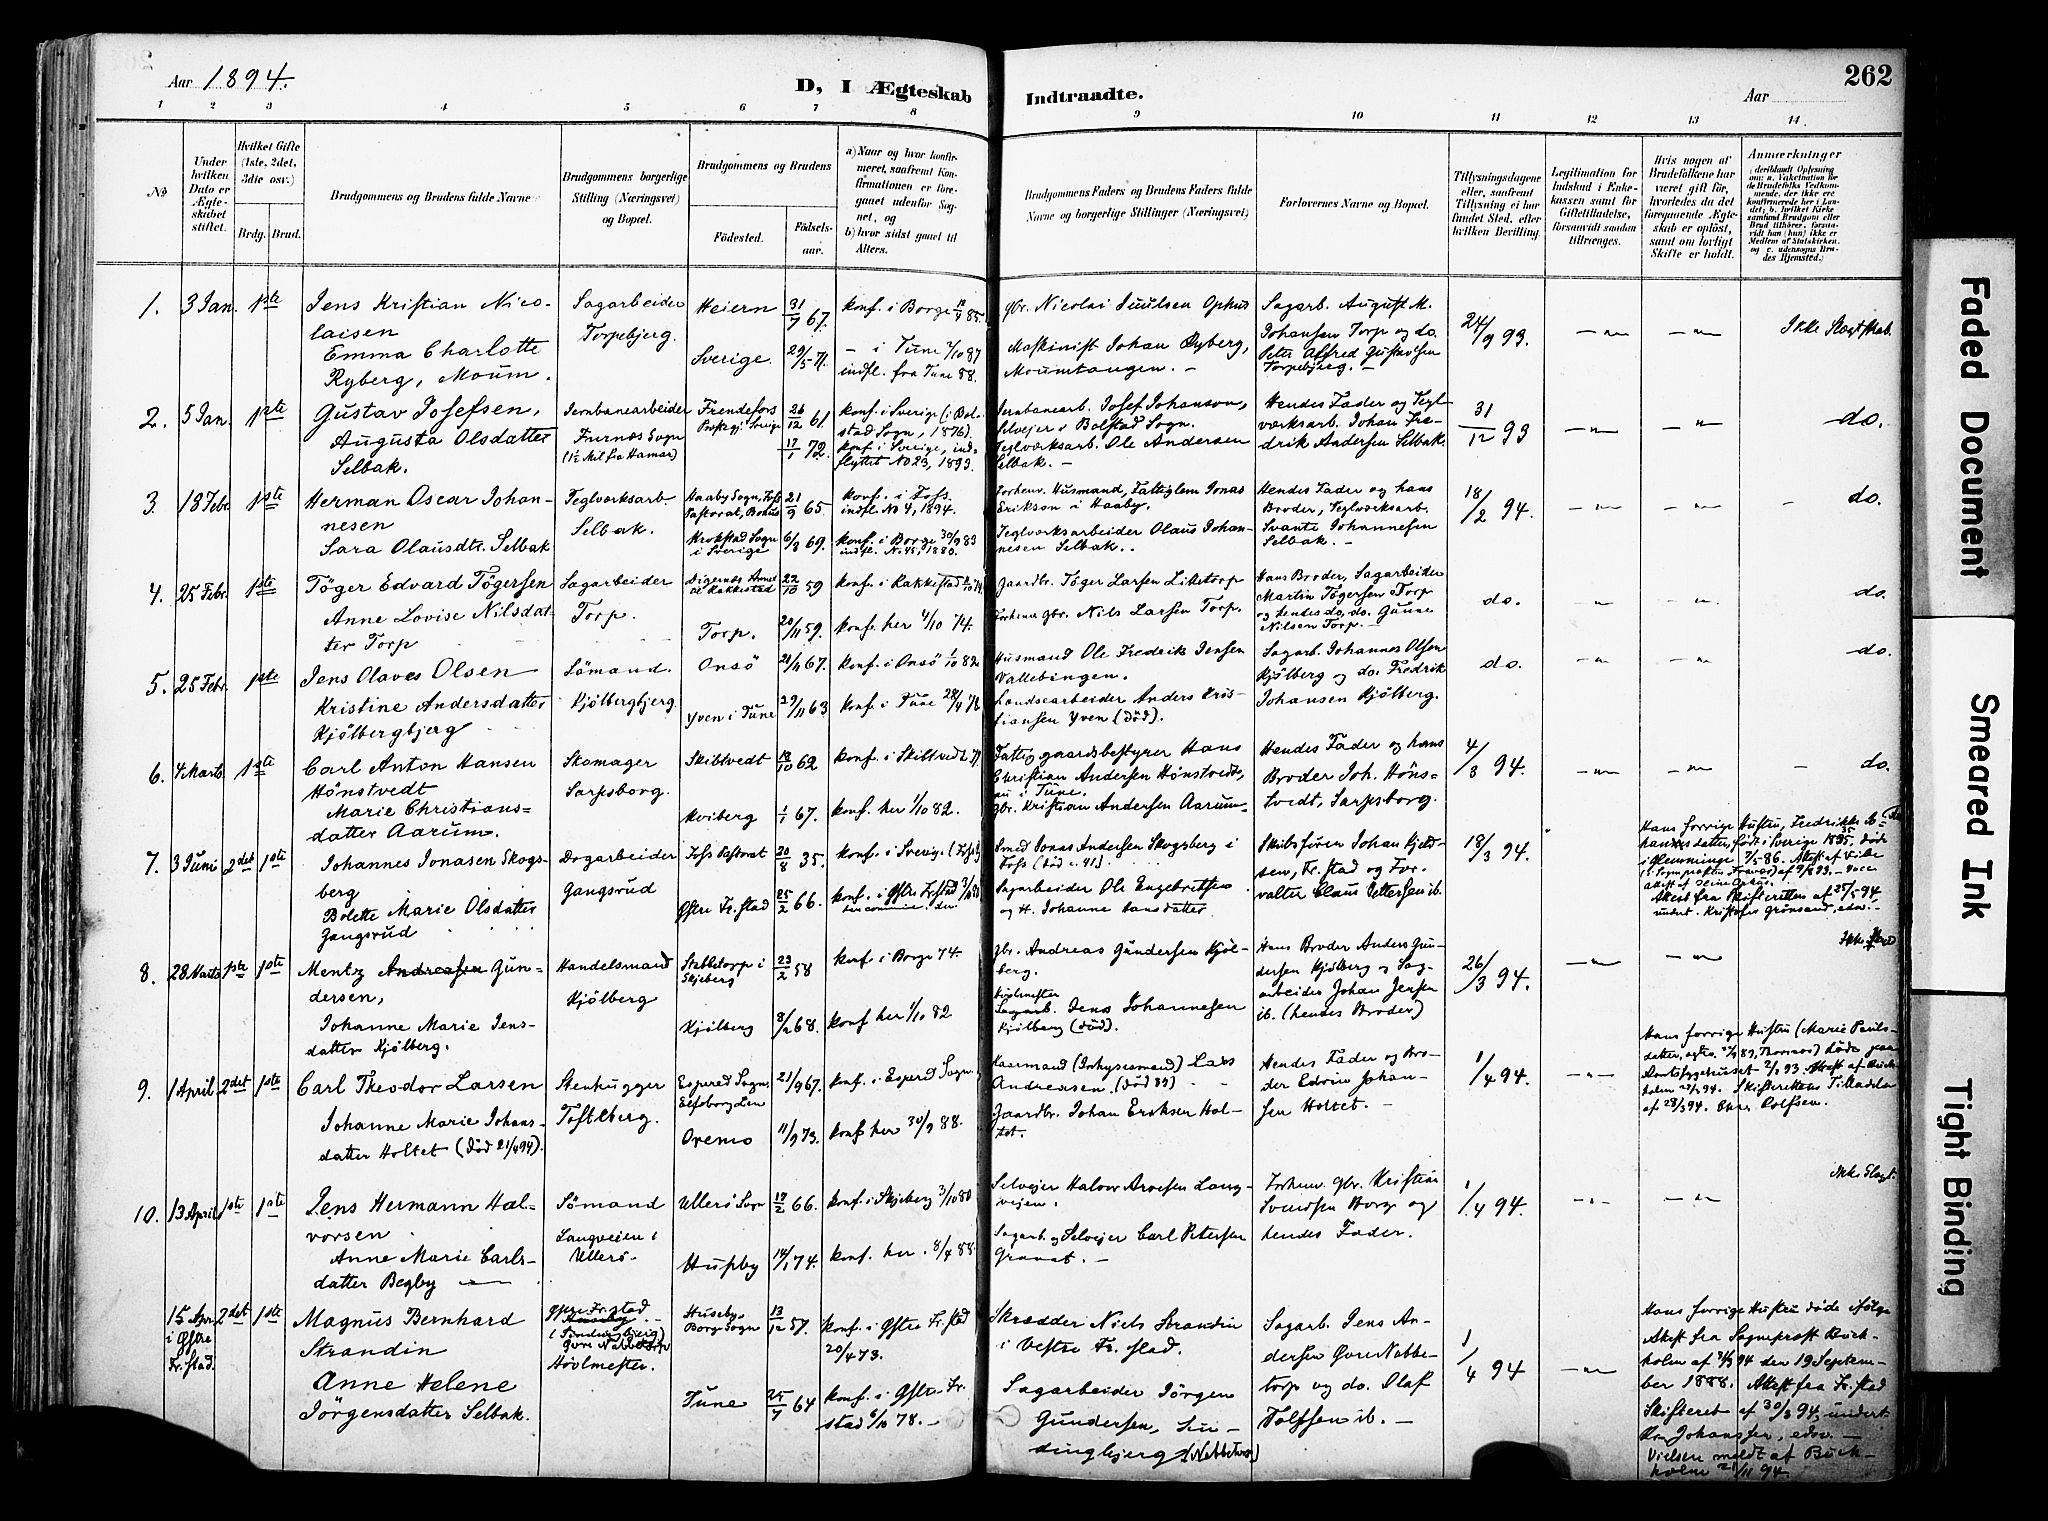 Aar 1894.
D, I Ægteskab Indtraadte.
Aar
262
1 2 3 4 5 6 7 8 9 10 11 12 13 14
No
Under hvilken Dato er Ægteskabet stiftet.
Hvilket Gifte (1ste, 2det, 3die osv.)
Brdg. Brud.
Brudgommens og Brudens fulde Navne
Brudgommens borgerlige Stilling (Næringsvei) og Bopæl.
Brudgommens og Brudens
Fødested. Fødselsaar.
a) Naar og hvor konfirmeret, saafremt Konfirmationen er foregaaet udenfor Sognet, og
b) hvor sidst gaaet til Alters.
Brudgommens Faders og Brudens Faders fulde Navne og borgerlige Stillinger (Næringsvei)
Forlovernes Navne og Bopæl.
Tillysningsdagene eller, saafremt Tillysning ei har fundet Sted, efter hvilken Bevilling.
Legitimation for Indskud i Enkekassen samt for Giftetilladelse, forsaavidt saadan tiltrænges.
Hvis nogen af Brudefolkene har været gift før, hvorledes da det foregaaende Ægteskab er opløst, samt om lovligt Skifte er holdt.
Anmærkninger
(deriblandt Oplysning om: a. Vakcination for de Brudefolks Vedkommende, der ikke ere konfirmerede her i Landet; b. hvilket Kirkesamfund Brudgom eller Brud tilhører, forsaavidt han (hun) ikke er Medlem af Statskirken, og c. udensogns Brudes Hjemsted.)
1. 3 Jan. 1ste
Jens Kristian Nicolaisen
Emma Charlotte Ryberg, Moum.
Sagarbeider Torpebjerg.
Heiern 31/7 67.
Sverige. 29/5 71.
konf. i Borge 85.
— i Tune 1/10 87 indfl. fra Tune 88.
gbr. Nicolai Juulsen Ophus
Maskinist Johan Ryberg, Moumtangen. —
Sagarb. August M. Johansen Torp og do. Peter Alfred Gustavsen Torpebjerg. —
24/9 93.
Ikke Slægtskab.
2. 5 Jan. 1ste
Gustav Josefsen,
Augusta Olsdatter Selbak.
Jernbanearbeider Furnæs Sogn (1½ Mil fra Hamar)
Frendefors Sverige 26/12 61.
17/1 72.
konf. i Sverige (i Bolstad Sogn, 1876).
konf. i Sverige, indflyttet No 23, 1893.
Jernbanearb. Josef Johanson, Selvejer i Bolstad Sogn.
Teglværksarb. Ole Andersen Selbak. —
Hendes Fader og Teglværksarb. Johan Fredrik Andersen Selbak.
31/12 93
do.
3. 18 Febr. 1ste
Herman Oscar Johannesen
Sara Olausdtr. Selbak
Teglværksarb. Selbak.
Haaby Sogn, Foss Pastorat, Bohus 21/9 65.
Krokstad Sogn i Sverige 6/8 69.
konf. i Foss. indfl. No 4, 1894.
konf. i Borge 30/9 83 indfl. No 45, 1880.
Forhenv. Husmand, Fattiglem Jonas Erikson i Haaby.
Teglværksarbeider Olaus Johannesen Selbak.
Hendes Fader og hans Broder, Teglværksarb. Svante Johannesen Selbak. —
18/2 94.
do.
4. 25 Febr. 1ste
Töger Edvard Tögersen
Anne Lovise Nilsdatter Torp
Sagarbeider Torp.
Digernæs Annex til Rakkestad 22/10 59
Torp. 20/11 59.
konf. i Rakkestad 74.
konf. her 4/10 74.
Gaardbr. Töger Larsen Likstorp
Forhenv. gbr. Nils Larsen Torp.
Hans Broder, Sagarbeider Martin Tögersen Torp og hendes do, do. Gunne Nilsen Torp. —
do.
do.
5. 25 Febr. 1ste
Jens Olaves Olsen
Kristine Andersdatter Kjölbergbjerg
Sömand. Kjölbergbjerg.
Onsö 21/11 67.
Yven i Tune 29/11 63
konf. i Onsö 1/10 82
konf. i Tune 28/4 78
Husmand Ole Fredrik Jensen Vallebingen.
Landsearbeider Anders Kristiansen Yven (död).
Sagarb. Johannes Olsen Kjölberg og do. Fredrik Johansen Kjölberg.
do.
do.
6. 4 Marts 1ste
Carl Anton Hansen Hönstvedt
Marie Christiansdatter Aarum.
Skomager Sarpsborg.
Skibtvedt 12/10 62
Kviberg 1/1 67.
konf. i Skibtvedt 77.
konf. her 1/10 82.
Fattiggaardsbestyrer Hans Christian Andersen Hönstvedt, nu i Tune.
Gbr. Kristian Andersen Aarum.
Hendes Fader og hans Broder Joh. Hönstvedt, Sarpsborg.
4/3 94.
do.
7. 3 Juni 2det 1ste
Johannes Jonasen Skogsberg
Bolette Marie Olsdatter Gangsrud
Dagarbeider Gangsrud
Foss Pastorat 20/8 35.
Østre Fr.stad 25/2 66.
konf. i Sverige (Foss)
konf. i Østre Fr.stad
Smed Jonas Andersen Skogsberg i Foss (död c. 41).
Sagarbeider Ole Engebretsen og H. Johanne Hansdatter
Skibsfören Johan Kjeldsen, Fr.stad og Forvalter Claus Pettersen ib.
18/3 94.
Hans forrige Hustru, Fredrikke Johannesdatter, födt i Sverige 1835, döde i Glemminge 7/5 86.
Attest fra Skifteretten af 25/5 94, undert. Kristofer Grönsand, edsv. —
8. 28 Marts 1ste 1ste
Mentz Andreasen Gundersen,
Johanne Marie Jensdatter Kjölberg.
Handelsmand Kjölberg
Stabbetorp i Skjeberg 23/2 58
Kjölberg 8/2 68.
konf. i Borge 74.
konf her 1/10 82
Gbr. Andreas Gundersen Kjölberg.
Sagarb. Jens Johannesen Kjölberg (död).
Hans Broder Anders Gundersen Kjölberg og Sagarbeider Johan Jensen ib. (hendes Broder)
26/3 94.
Ikke Slægt
9. 1 April 2det 1ste
Carl Theodor Larsen
Johanne Marie Johansdatter Holtet (död 21/4 94).
Stenhugger Toftlberg.
Espered Sogn, Elfsborg Len 21/9 67.
Oremo 11/9 73.
konf. i Espered Sogn
konf her 30/9 88.
Kaarmand (Inhysesmand) Lars Andreasen (död 89)
Gaardbr. Johan Eriksen Holtet.
Hendes Fader og Broder Edvin Johansen Holtet. —
1/4 94.
Hans forrige Hustru (Marie Paulsdatter, döde paa Amtssygehuset 2/1 93. Attest af Buckholm 94. Skifterettens Tilladelse af 28/3 94. Chr. Rolfsen.
10. 13 April 1ste 1ste
Jens Hermann Halvorsen
Anne Marie Carlsdatter Begby
Sömand Langveien i Ullerö.
Ullerö Sogn 12/2 66.
Husby 14/1 74.
konf. i Skjeberg 3/10 80
konf. her 8/4 88.
Selvejer Halvor Arvesen Langveien.
Sagarb. og Selvejer Carl Petersen Granat. —
Forhenv. gbr. Kristian Svendsen Borge og hendes Fader.
1/4 94.
Ikke Slægt.
15 Apr. i Østre Fr.stad. 2det 1ste
Magnus Bernhard Strandin
Anne Helene Jörgensdatter Selbak.
Østre Fr.stad Höolmester.
Huseby Borg Sogn 13/12 57.
Tune 25/7 64
konf. i Østre Fr.stad 20/4 73.
konf. i Østre Fr.stad 6/10 78. —
Skrædder Niels Strandin i Vestre Fr.stad.
Sagarbeider Jörgen Gundersen, Sundingbjerg (Nabbetorp)
Sagarb. Jens Andersen Øvre Nabbetorp og do. Olaf Tolfsen ib. —
1/4 94
Hans forrige Hustru döde ifölge Attest fra Sogneprest Buckholm af 31/3 94 den 19 September 1888. Attest fra Fr.stad Skifteret af 30/3 94, undert. Johansen, edsv. —
Vielsen meldt af Buckholm 21/11 94.
Faded Document
Smeared Ink
Tight Binding